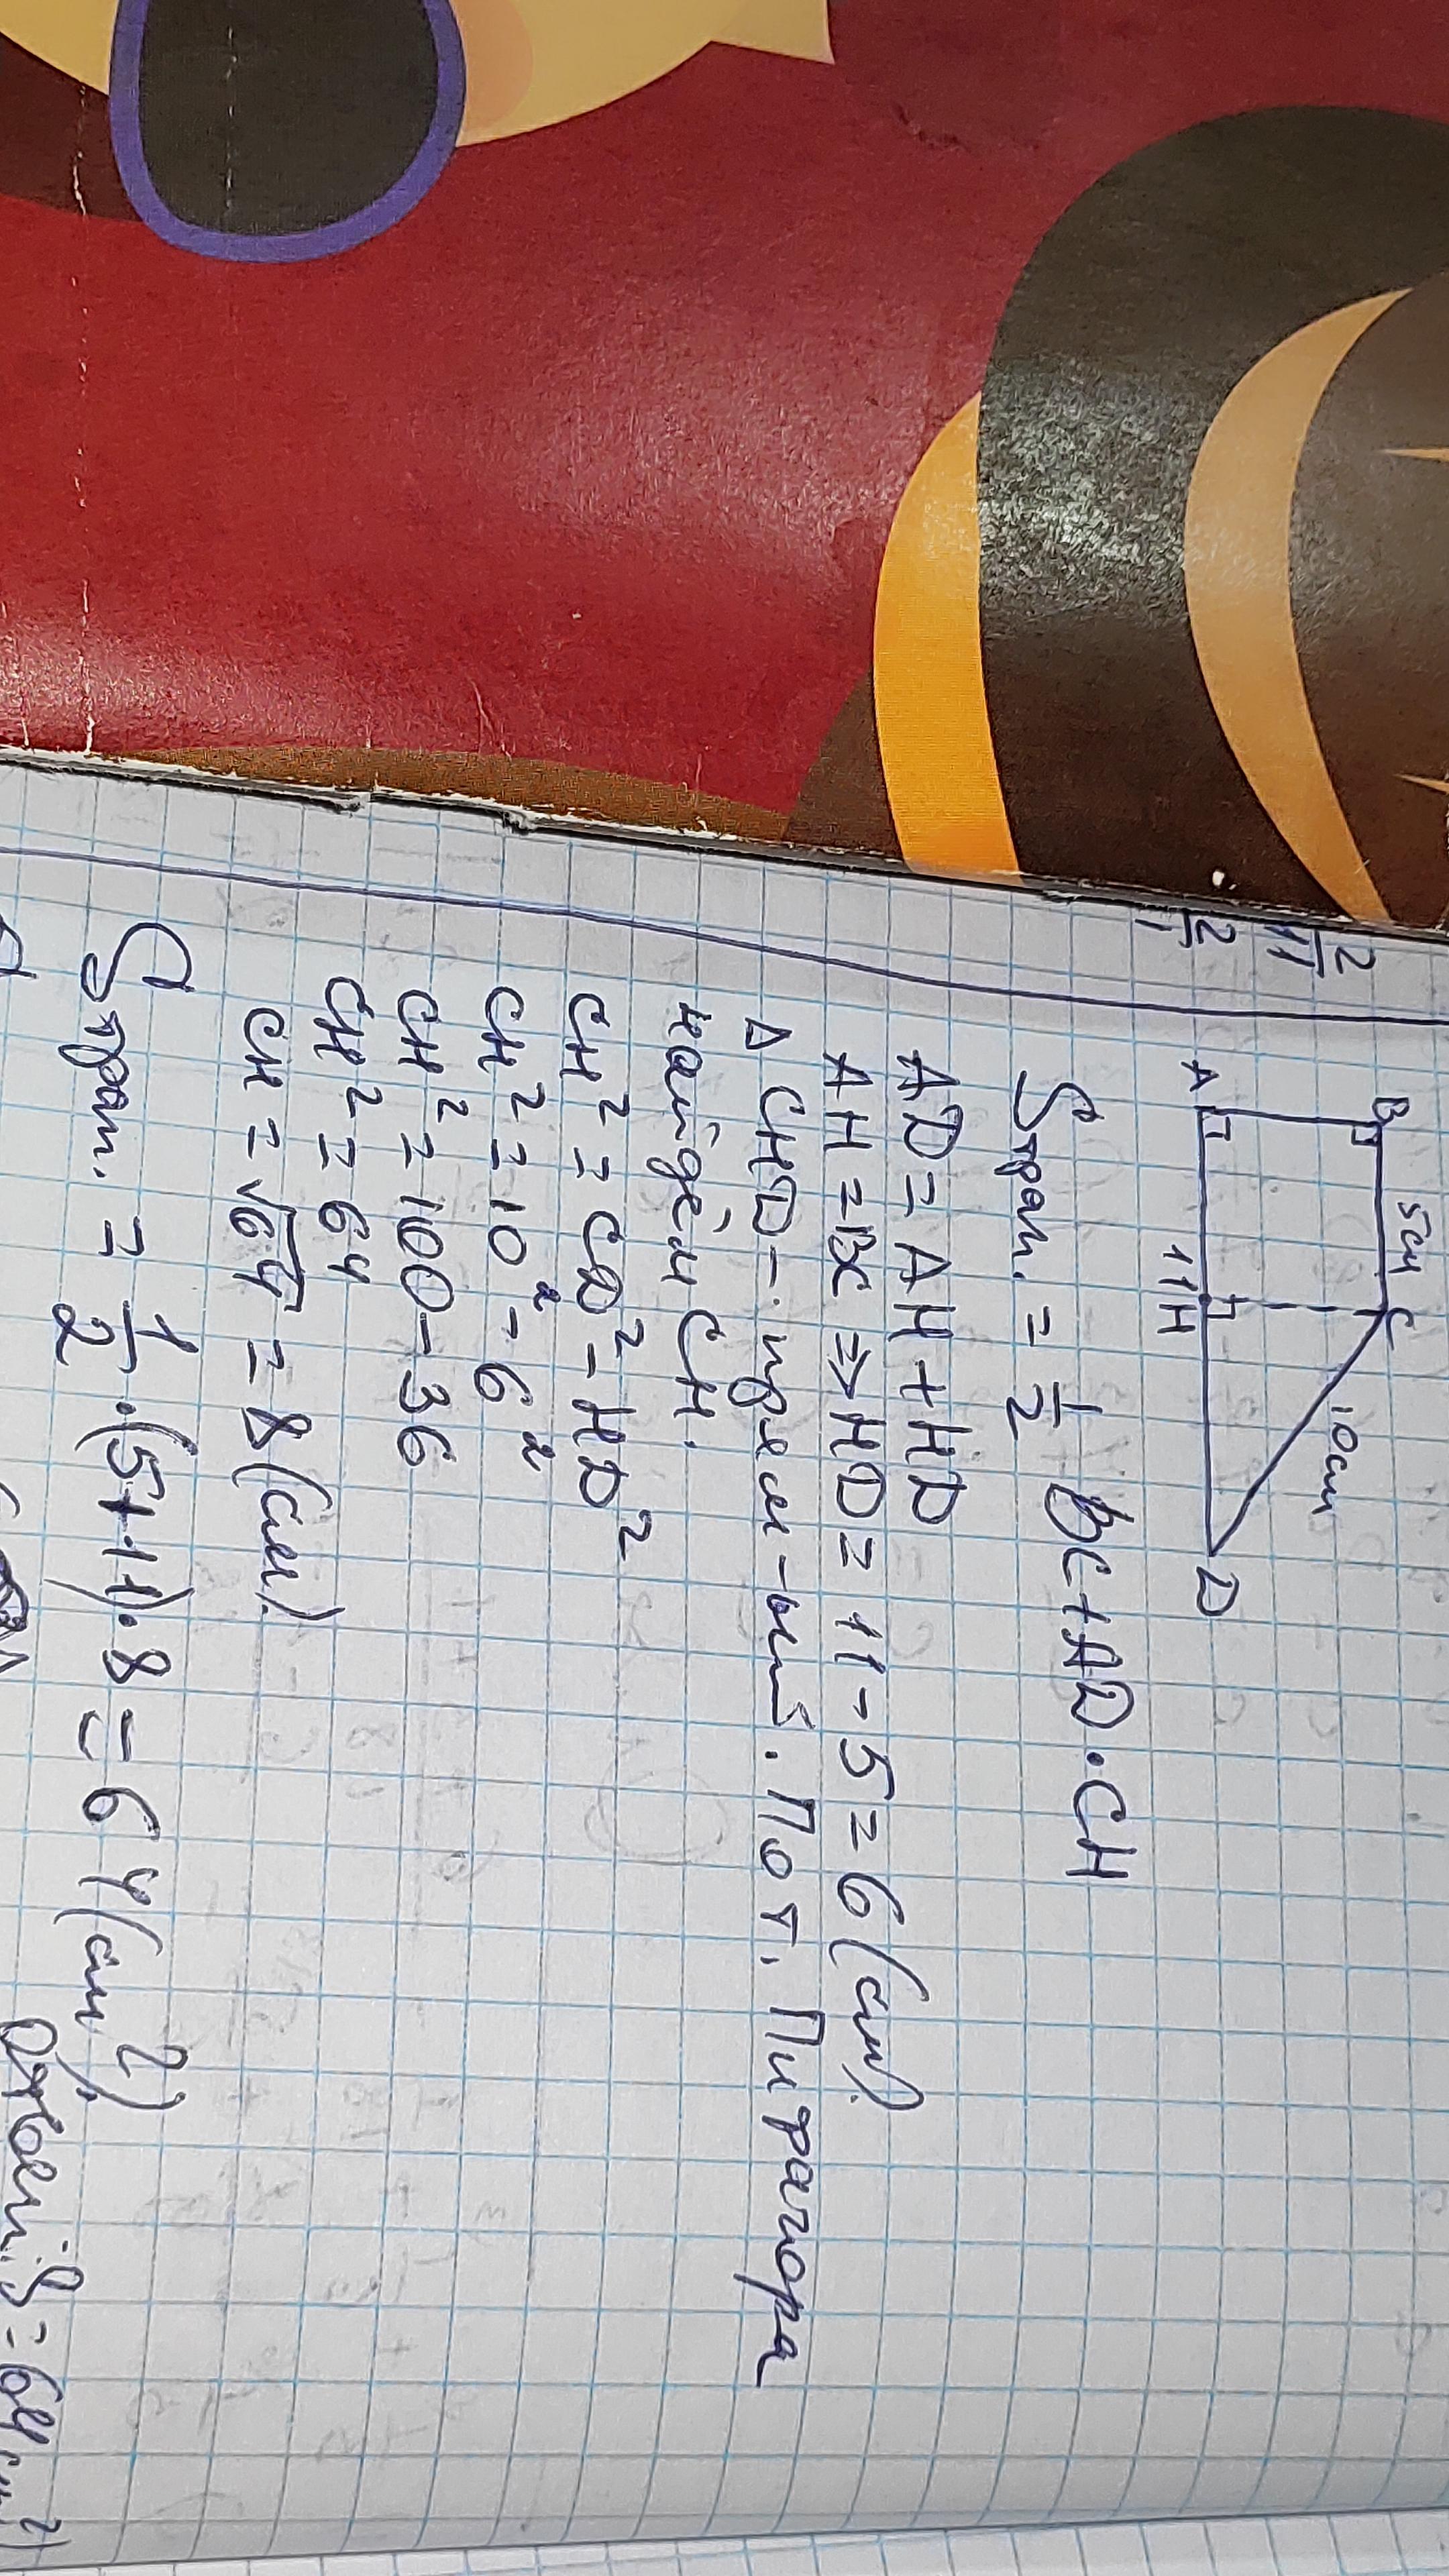 2
11
2
1
B 5см C
10см
A 11 H D
Sтрап. = 1/2 BC+AD·CH
AD = AH+HD
AH = BC ⇒ HD = 11-5=6(см).
Δ CHD - прям-ый. По т. Пифагора
найдём CH.
CH² = CD² - HD²
CH² = 10² - 6²
CH² = 100-36
CH² = 64
CH = √64 = 8 (см).
Sтрап. = 1/2 ·(5+11)·8 = 64(см²).
Ответ: S = 64